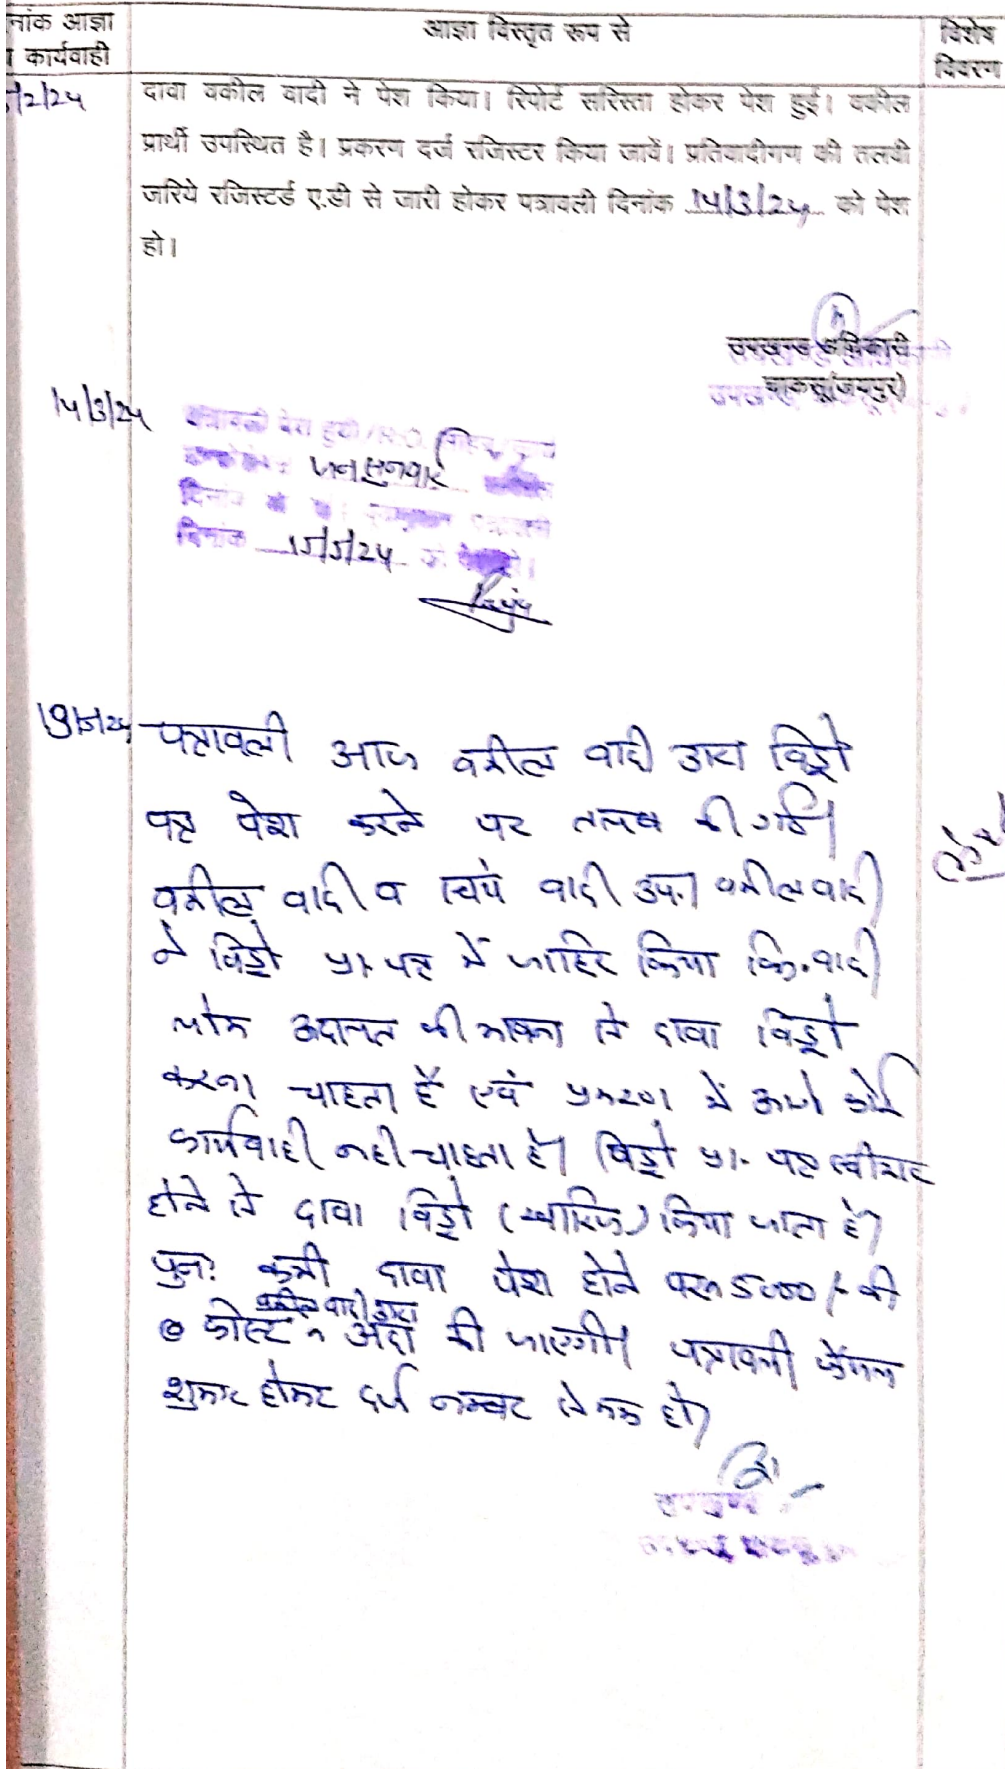 नांक आज्ञा
कार्यवाही
आज्ञा विस्तृत रूप से
विशेष
विवरण
/2/24
दावा वकील वादी ने पेश किया। रिपोर्ट सरिस्ता होकर पेश हुई। वकील
प्रार्थी उपस्थित है। प्रकरण दर्ज रजिस्टर किया जावें। प्रतिवादीगण की तलवी
जरिये रजिस्टर्ड ए.डी से जारी होकर पत्रावली दिनांक 14/3/24 को पेश
हो।
उपखण्ड अधिकारी
चाकसू(जयपुर)
14/3/24
पत्रावली पेश हुयी
जन सुनवाई
दिनांक
दिनांक 15/5/24
पत्रावली आज वकील वादी द्वारा विड्रो
पत्र पेश करने पर तलब की गई।
वकील वादी व स्वयं वादी उप.। वकील वादी
ने विड्रो प्रा. पत्र में जाहिर किया कि वादी
लोक अदालत की भावना से दावा विड्रो
करना चाहता है एवं प्रकरण में आगे कोई
कार्यवाही नही चाहता है। विड्रो प्रा. पत्र स्वीकार
होने से दावा विड्रो (खारिज) किया जाता है।
पुनः कभी दावा पेश होने पर 5000/- की
वकील वादी द्वारा
कोस्ट अदा की जाएगी। पत्रावली फैसल
शुमार होकर दर्ज नम्बर से कम हो।